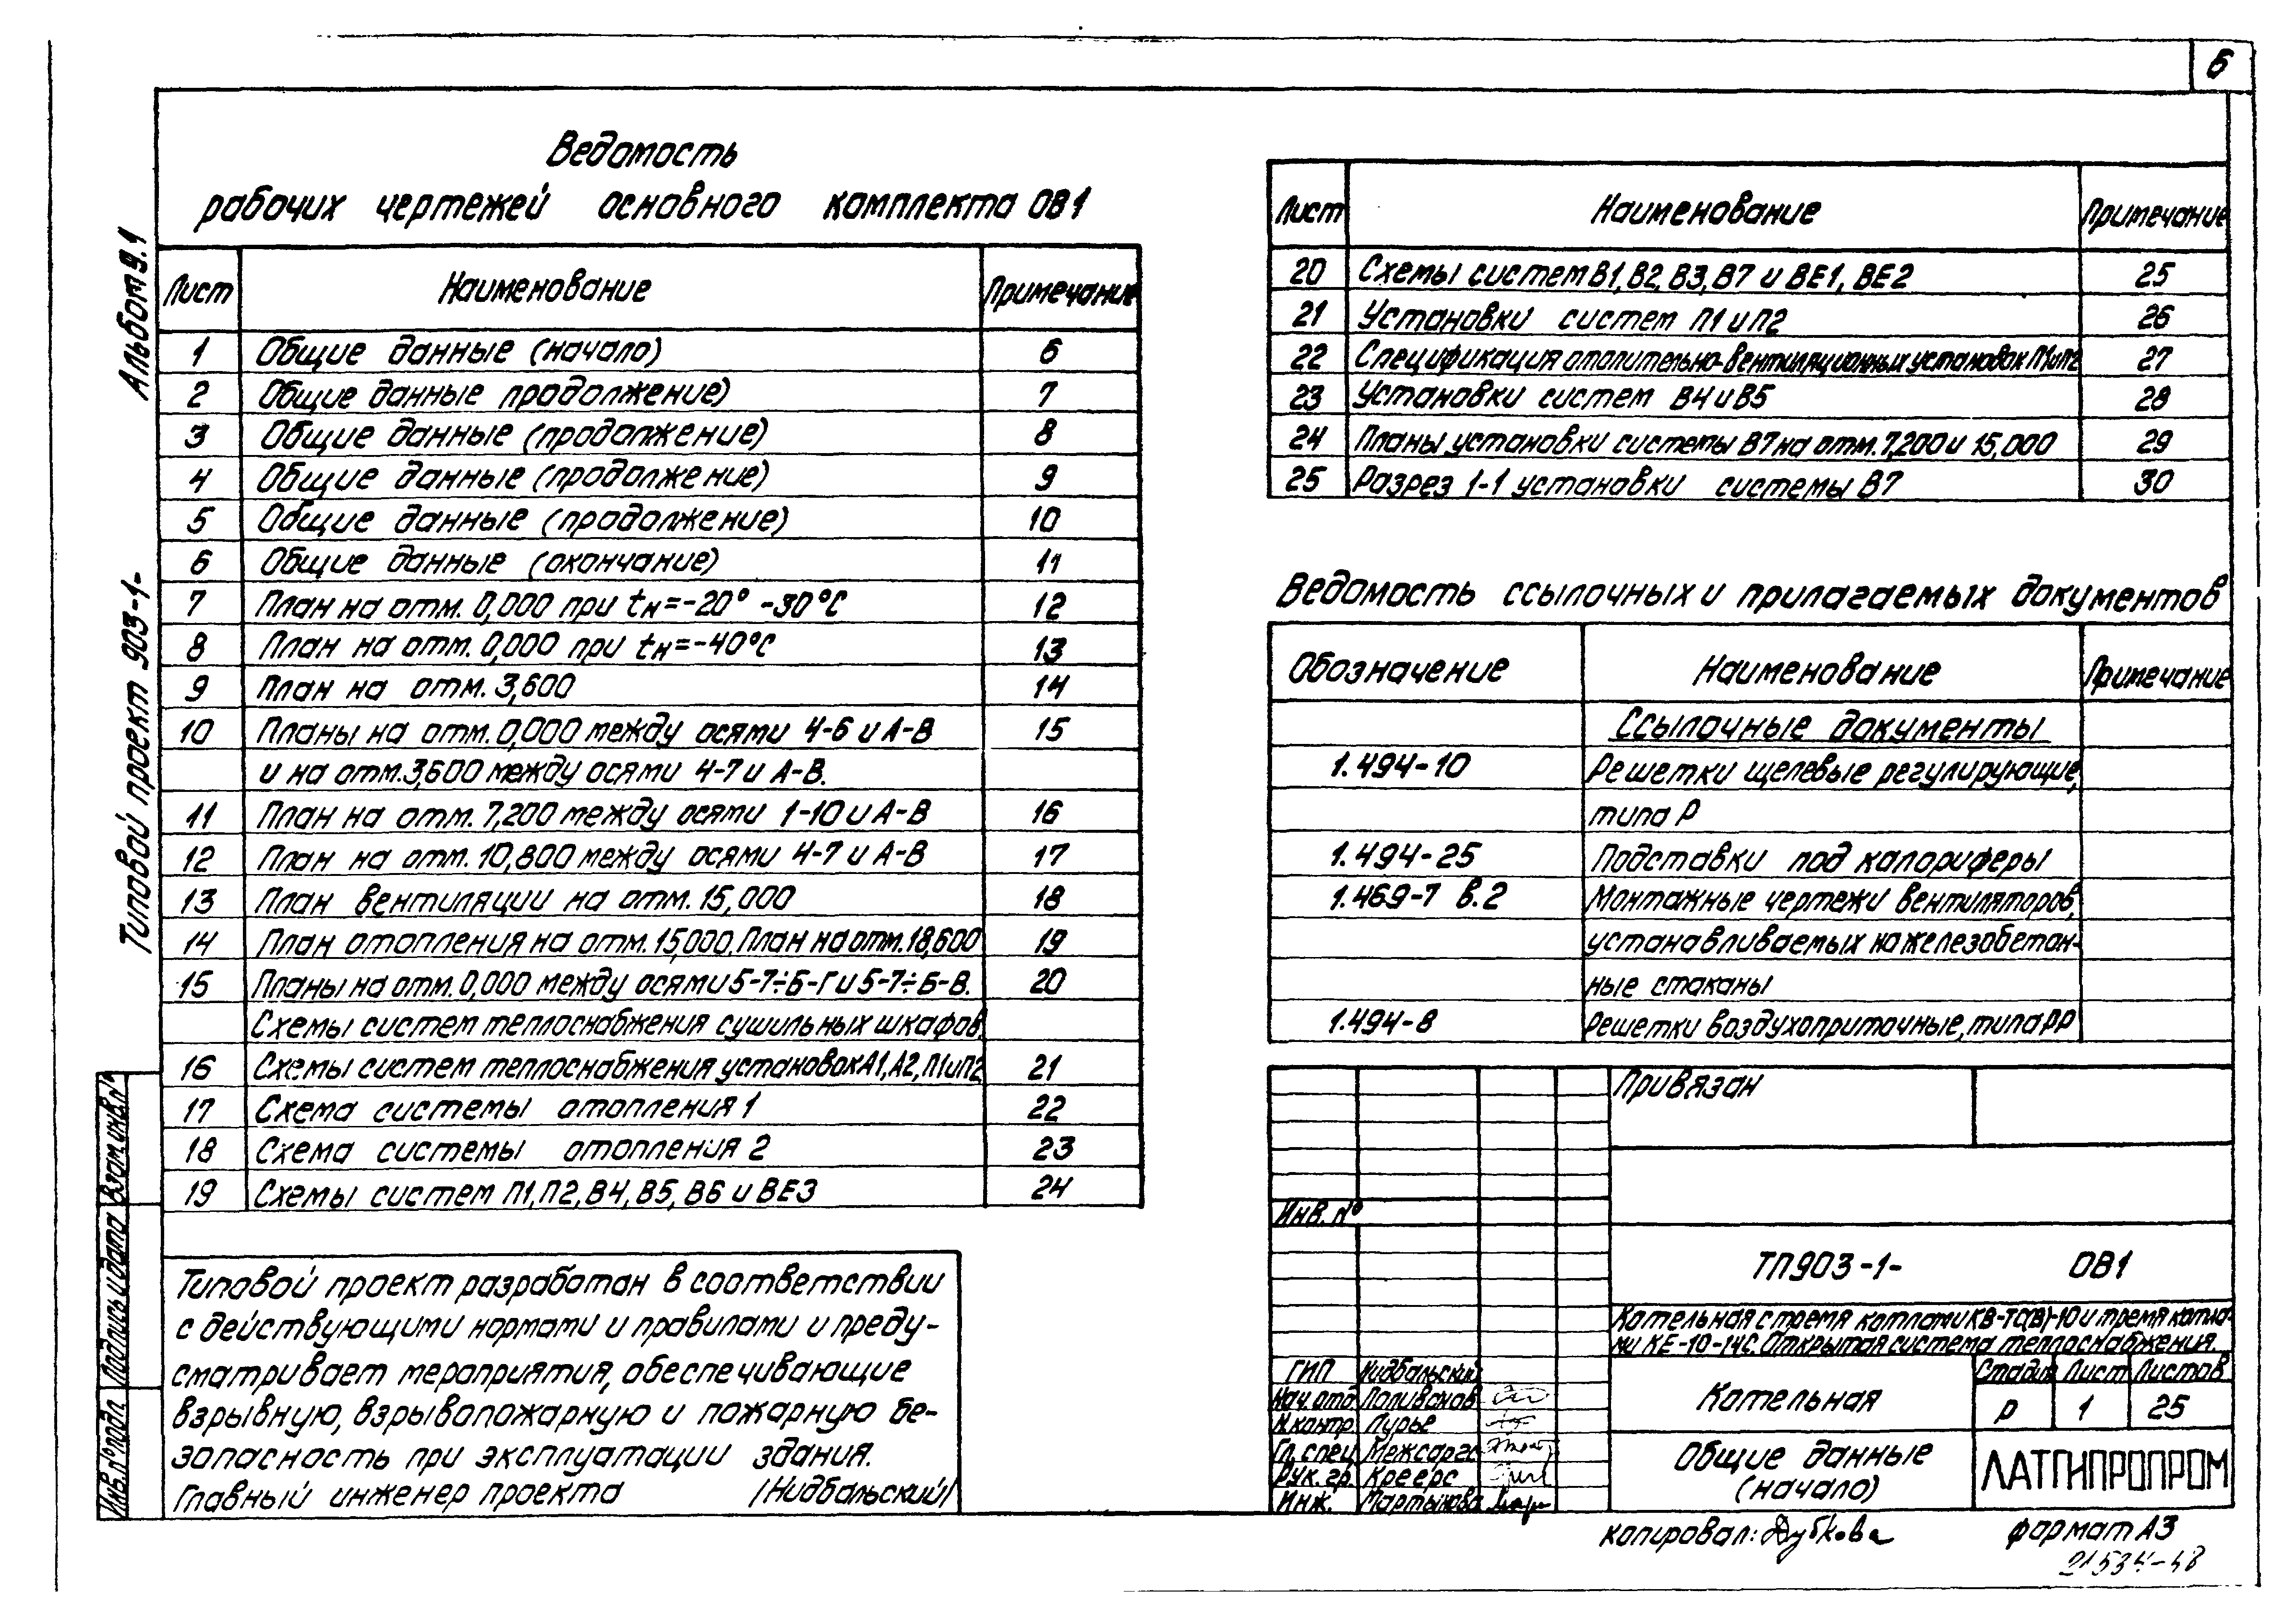 6
Альбом 9.1
Типовой проект 903-1-
Взам.инв.№
Подпись и дата
Инв.№подл.
Ведомость
рабочих чертежей основного комплекта ОВ1
Лист Наименование Примечание
1 Общие данные (начало) 6
2 Общие данные продолжение) 7
3 Общие данные (продолжение) 8
4 Общие данные (продолжение) 9
5 Общие данные (продолжение) 10
6 Общие данные (окончание) 11
7 План на отм. 0,000 при tн=-20° -30°С 12
8 План на отм. 0,000 при tн=-40°С 13
9 План на отм. 3,600 14
10 Планы на отм. 0,000 между осями 4-6 и А-В 15
и на отм.3,600 между осями 4-7 и А-В.
11 План на отм. 7,200 между осями 1-10 и А-В 16
12 План на отм. 10,800 между осями 4-7 и А-В 17
13 План вентиляции на отм. 15,000 18
14 План отопления на отм. 15,000. План на отм. 18,600 19
15 Планы на отм. 0,000 между осями 5-7÷Б-Г и 5-7÷Б-В. 20
Схемы систем теплоснабжения сушильных шкафов.
16 Схемы систем теплоснабжения установок А1, А2, П1 и П2 21
17 Схема системы отопления 1 22
18 Схема системы отопления 2 23
19 Схемы систем П1, П2, В4, В5, В6 и ВЕ3 24
Типовой проект разработан в соответствии
с действующими нормами и правилами и преду-
сматривает мероприятия, обеспечивающие
взрывную, взрывопожарную и пожарную бе-
зопасность при эксплуатации здания.
Главный инженер проекта /Нидбальский/
Лист Наименование Примечание
20 Схемы систем В1, В2, В3, В7 и ВЕ1, ВЕ2 25
21 Установки систем П1 и П2 26
22 Спецификация отопительно-вентиляционных установок П1 и П2 27
23 Установки систем В4 и В5 28
24 Планы установки системы В7 на отм. 7,200 и 15,000 29
25 Разрез 1-1 установки системы В7 30
Ведомость ссылочных и прилагаемых документов
Обозначение Наименование Примечание
Ссылочные документы
1.494-10 Решетки щелевые регулирующие,
типа Р
1.494-25 Подставки под калориферы
1.469-7 в.2 Монтажные чертежи вентиляторов,
устанавливаемых на железобетон-
ные стаканы
1.494-8 Решетки воздухоприточные, типа РР
Привязан
Инв. №
ТП903-1- ОВ1
Котельная с тремя котлами КВ-ТС(В)-10 и тремя котла-
ми КЕ-10-14С. Открытая система теплоснабжения.
ГИП Нидбальский
Нач. отд. Поливанов
Н.контр. Лурье
Гл. спец. Межсаргс
Рук. гр. Креерс
Инж. Мартынова
Котельная
Стадия Лист Листов
Р 1 25
Общие данные
(начало)
ЛАТГИПРОПРОМ
копировал: Дубкова формат А3
21534-48